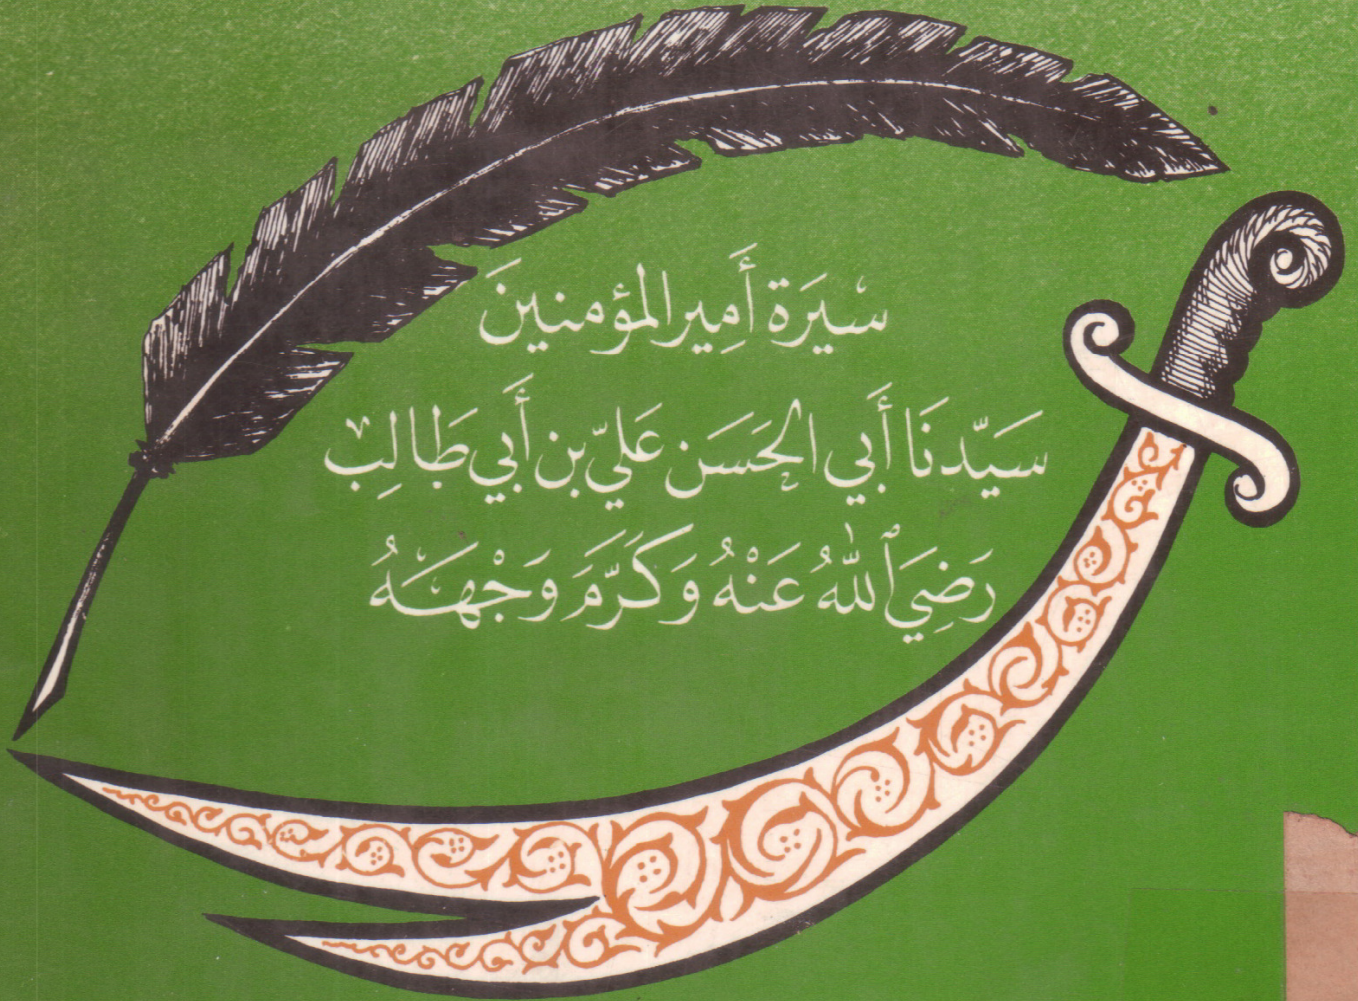 سيَرَة أَمِير المؤمنينَ
سَيّدنَا أَبي الحَسَن عَليّ بن أَبي طَالِب
رَضِيَ ٱللّٰهُ عَنْهُ وَكَرَّمَ وَجْهَهُ